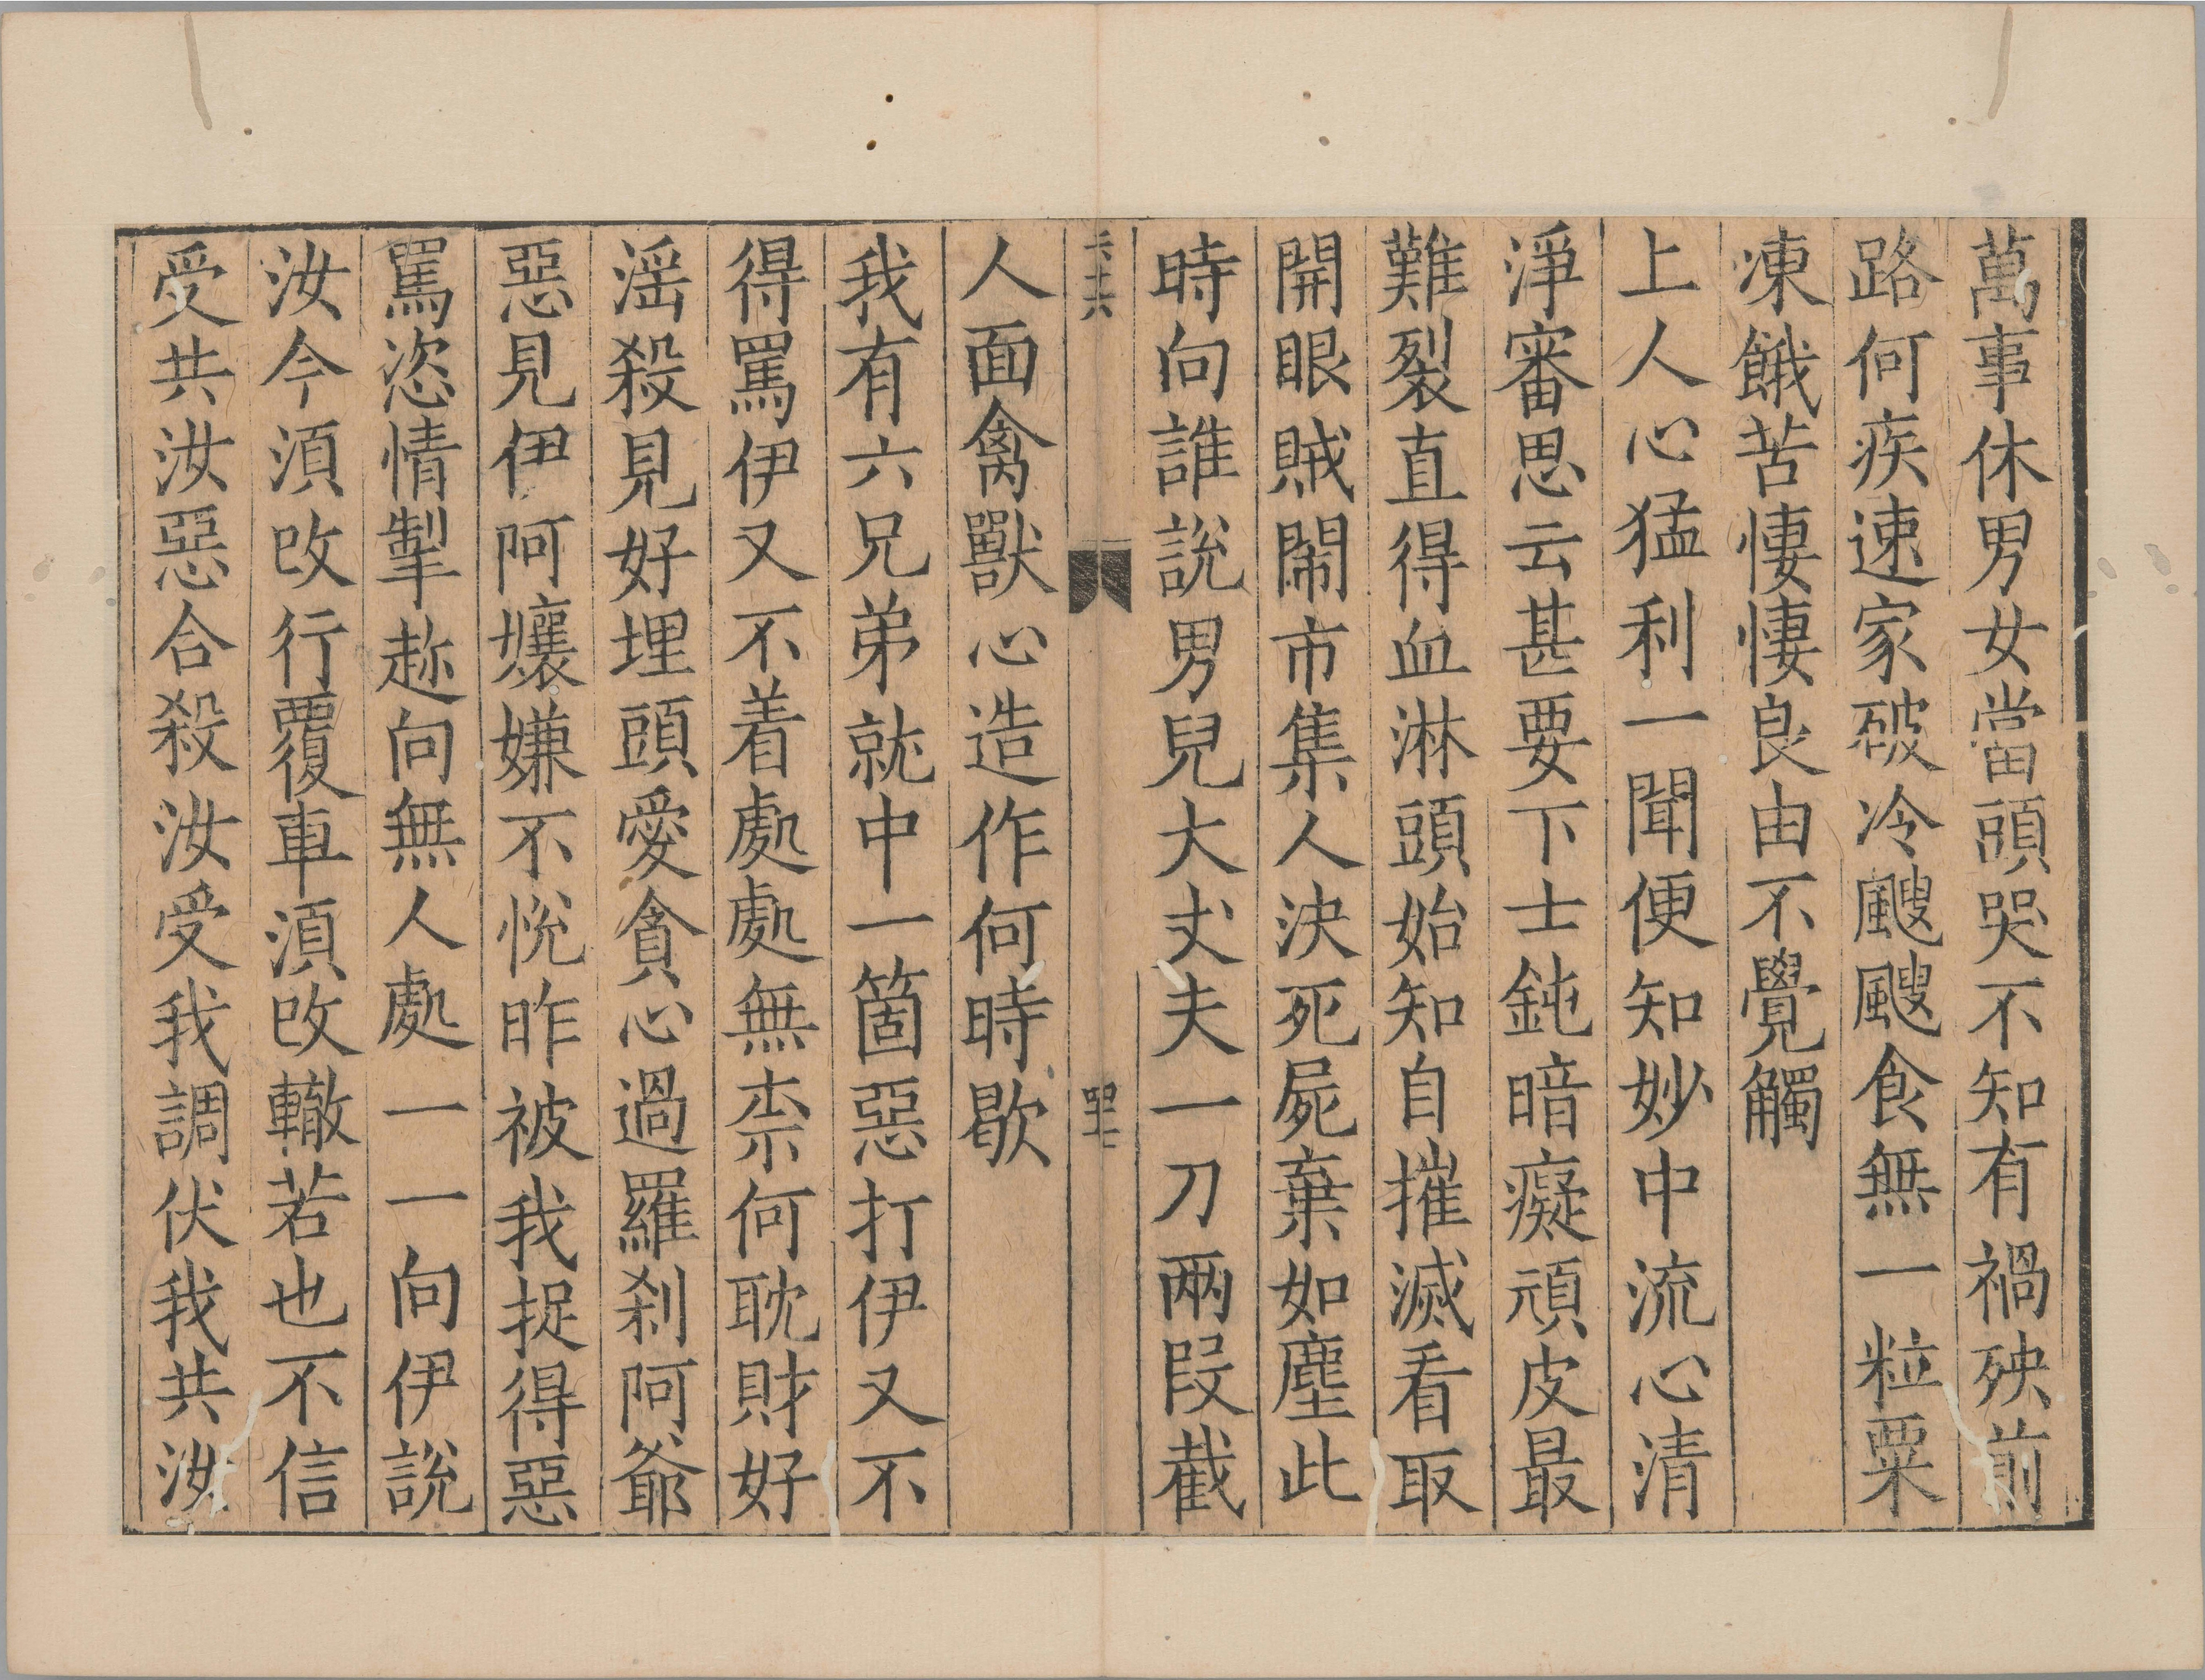 萬事休男女當頭哭不知有禍殃前
路何疾速家破冷颼颼食無一粒粟
凍餓苦悽悽良由不覺觸
上人心猛利一聞便知妙中流心清
淨審思云甚要下士鈍暗癡頑皮最
難裂直得血淋頭始知自摧滅看取
開眼賊鬧市集人決死屍棄如塵此
時向誰說男兒大丈夫一刀兩段截
四十七
人面禽獸心造作何時歇
我有六兄弟就中一箇惡打伊又不
得罵伊又不着處處無柰何耽財好
滛殺見好埋頭愛貪心過羅剎阿爺
惡見伊阿孃嫌不悅昨被我捉得惡
罵恣情掣趂向無人處一一向伊說
汝今須改行覆車須改轍若也不信
受共汝惡合殺汝受我調伏我共汝